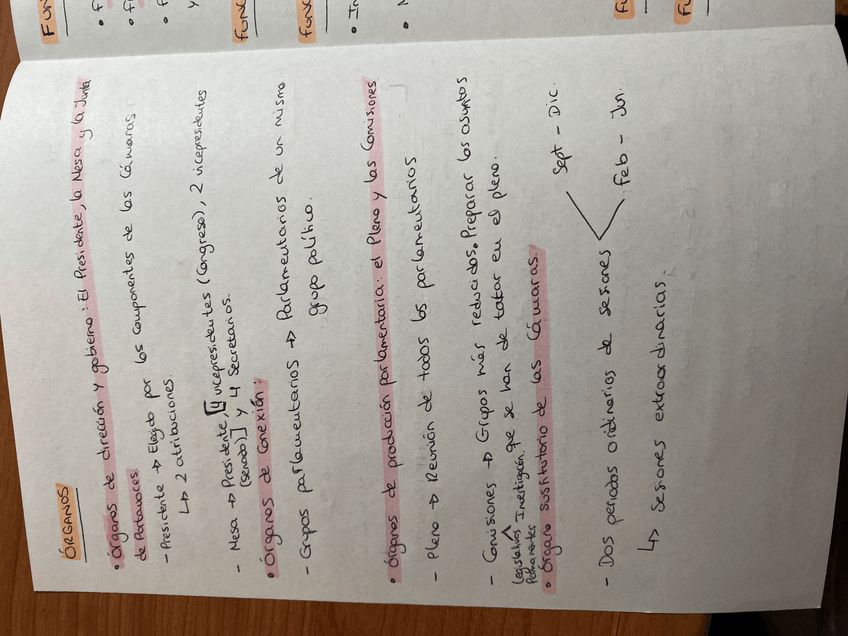 ÓRGANOS
• Órganos de dirección y gobierno: El Presidente, la Mesa y la Junta
de Portavoces.
- Presidente → Elegido por los componentes de las Cámaras
↳ 2 atribuciones.
- Mesa → Presidente, [4 vicepresidentes (Congreso), 2 vicepresidentes
(Senado)] y 4 Secretarios.
• Órganos de Conexión:
- Grupos parlamentarios → Parlamentarios de un mismo
grupo político.
• Órganos de producción parlamentaria: el Pleno y las Comisiones
- Pleno → Reunión de todos los parlamentarios
- Comisiones → Grupos más reducidos. Preparar los asuntos
Legislativas Investigación. que se han de tratar en el pleno.
Permanentes
• Órgano sustitutorio de las Cámaras.
- Dos periodos ordinarios de sesiones
Sept - Dic.
Feb - Jun.
↳ Sesiones extraordinarias.